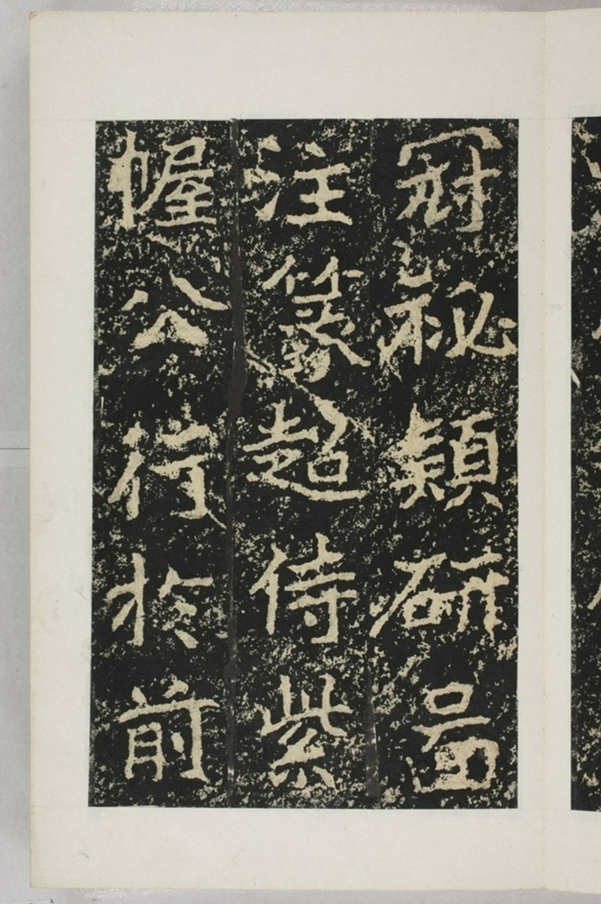 冠秘穎研啚
注篆超侍紫
幄公行於前